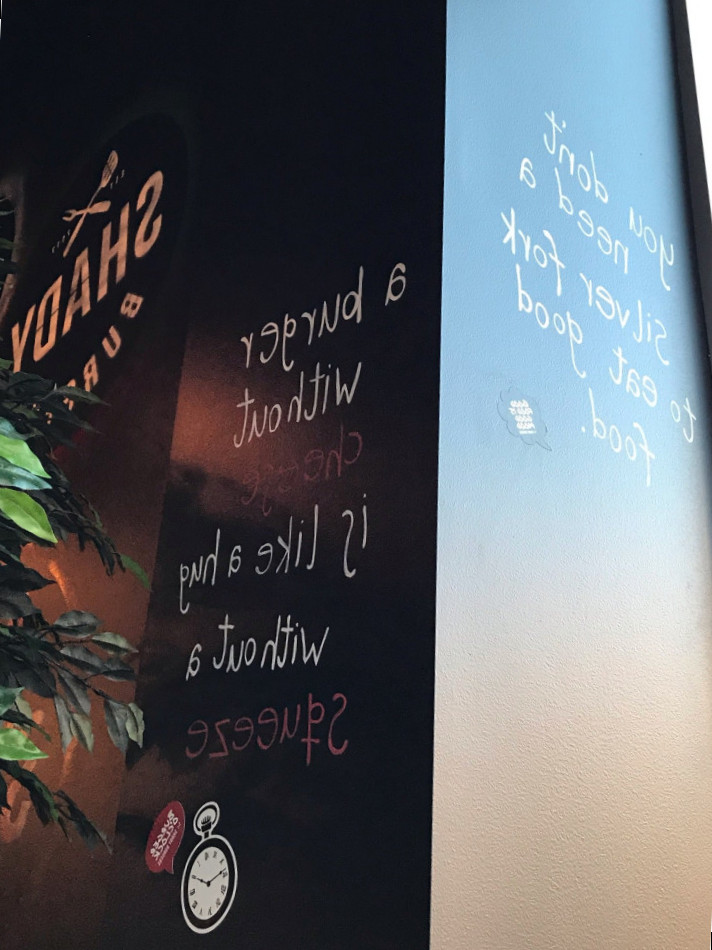 SHADY
BURGER
a burger
without
cheese
is like a hug
without a
squeeze
you don't
need a
silver fork
to eat good
food.